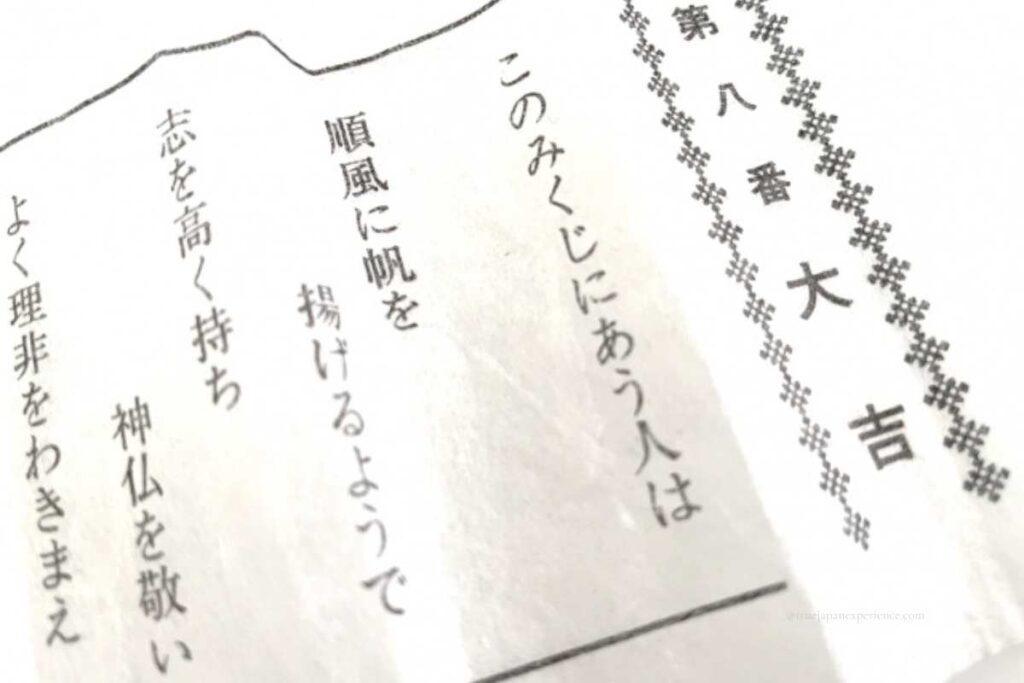 第八番大吉
このみくじにあう人は
順風に帆を
揚げるようで
志を高く持ち
神仏を敬い
よく理非をわきまえ
@truejapanexperience.com